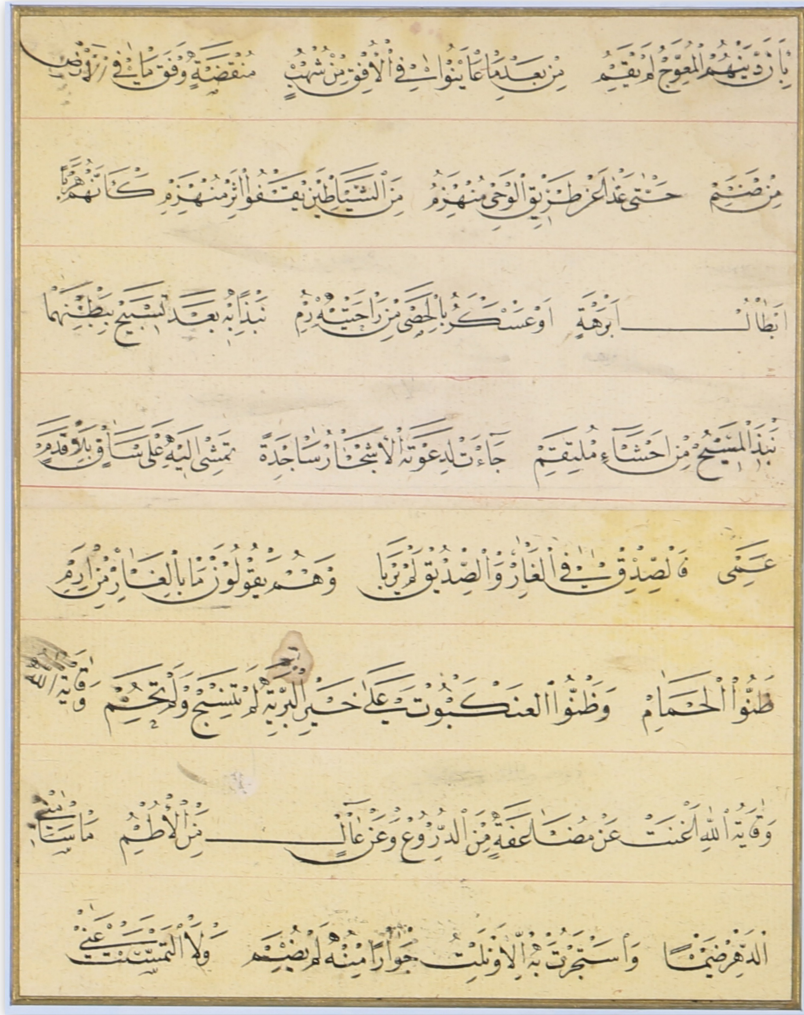 بِاَنَّ دِينَهُمُ الْمُعْوَجَّ لَمْ يَقُمِ مِنْ بَعْدِ مَا عَايَنُوا فِي الْاُفْقِ مِنْ شُهُبٍ مُنْقَضَّةٍ وَفْقَ مَا فِي الْاَرْضِ
مِنْ صَنَمِ حَتّٰى غَدَا عَنْ طَرِيقِ الْوَحْيِ مُنْهَزِمٌ مِنَ الشَّيَاطِينِ يَقْفُوا اِثْرَ مُنْهَزِمِ كَاَنَّهُمْ هَرَبًا
اَبْطَالُ اَبْرَهَةٍ اَوْ عَسْكَرٌ بِالْحَصٰى مِنْ رَاحَتَيْهِ رُمِ نَبْذًا بِهِ بَعْدَ تَسْبِيحٍ بِبَطْنِهِمَا
نَبْذَ الْمُسَبِّحِ مِنْ اَحْشَاءِ مُلْتَقِمِ جَاءَتْ لِدَعْوَتِهِ الْاَشْجَارُ سَاجِدَةً تَمْشِي اِلَيْهِ عَلٰى سَاقٍ بِلَا قَدَمِ
عَمِى فَالصِّدْقُ فِي الْغَارِ وَالصِّدِّيقُ لَمْ يَرِيَا وَهُمْ يَقُولُونَ مَا بِالْغَارِ مِنْ اِرَمِ
ظَنُّوا الْحَمَامَ وَظَنُّوا الْعَنْكَبُوتَ عَلٰى خَيْرِ الْبَرِيَّةِ لَمْ تَنْسِجْ وَلَمْ تَحُمِ وِقَايَةُ اللّٰهِ
وِقَايَةُ اللّٰهِ اَغْنَتْ عَنْ مُضَاعَفَةٍ مِنَ الدُّرُوعِ وَعَنْ عَالٍ مِنَ الْاُطُمِ مَا سَامَنِي
الدَّهْرُ ضَيْمًا وَاسْتَجَرْتُ بِهِ اِلَّا وَنِلْتُ جِوَارًا مِنْهُ لَمْ يُضَمِ وَلَا الْتَمَسْتُ غِنٰى